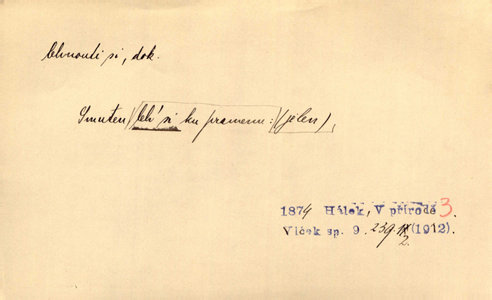 lehnouti si, dok.
Smuten leh' si ku prameni: (jelen),
1874 Hálek, V přírodě 3.
Vlček sp. 9. 239 (1912).
2.